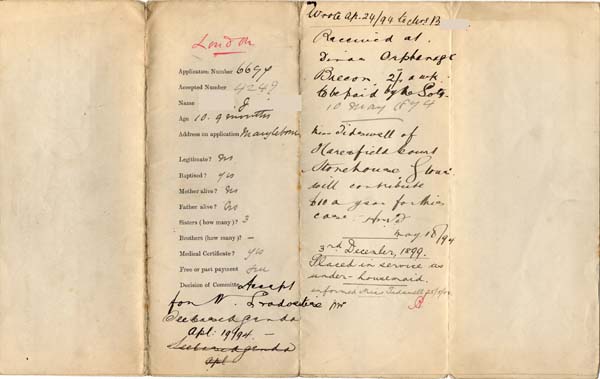 London
Application Number 6694
Accepted Number 4249
Name J
Age 10. 9 months
Address on application Marylebone
Legitimate? No
Baptised? yes
Mother alive? No
Father alive? No
Sisters (how many)? 3
Brothers (how many)? –
Medical Certificate? yes
Free or part payment free
Decision of Committee Accept
for N.
See
Apl: 19/94 –
Apl
Wrote Ap. 24/94 to
Received at
Dinan Orphanage
Brecon. 2/. a wk.
to be paid by the Soty.
10 May 1894
Miss Tidswell of
Haresfield Court
Stonehouse Glouc
will contribute
£10 a year for this
case.
May 18/94
3rd December, 1899.
Placed in service as
under-housemaid.
informed Miss Tidswell